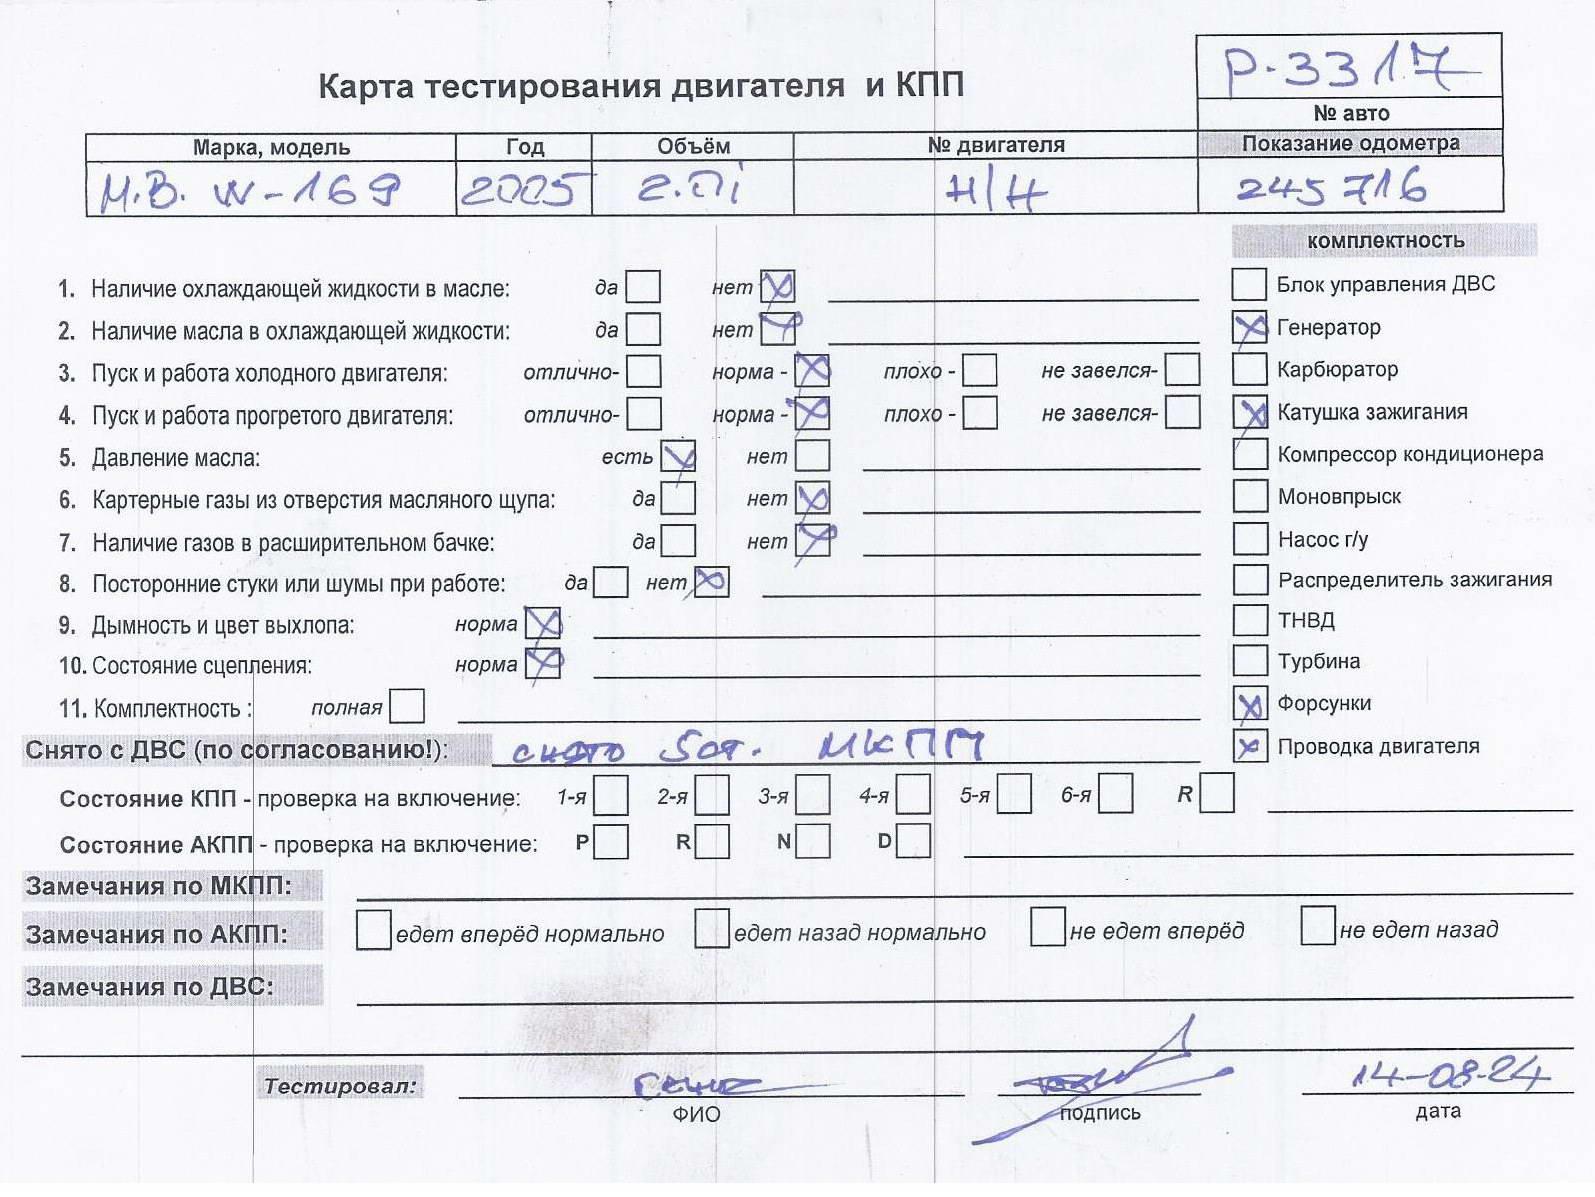 Р-3317
Карта тестирования двигателя и КПП
№ авто
Марка, модель Год Объём № двигателя Показание одометра
М.В. W-169 2005 2.0i Н/Н 245716
комплектность
1. Наличие охлаждающей жидкости в масле: да нет Блок управления ДВС
2. Наличие масла в охлаждающей жидкости: да нет Генератор
3. Пуск и работа холодного двигателя: отлично- норма - плохо - не завелся- Карбюратор
4. Пуск и работа прогретого двигателя: отлично- норма - плохо - не завелся- Катушка зажигания
5. Давление масла: есть нет Компрессор кондиционера
6. Картерные газы из отверстия масляного щупа: да нет Моновпрыск
7. Наличие газов в расширительном бачке: да нет Насос г/у
8. Посторонние стуки или шумы при работе: да нет Распределитель зажигания
9. Дымность и цвет выхлопа: норма ТНВД
10. Состояние сцепления: норма Турбина
11. Комплектность : полная Форсунки
Снято с ДВС (по согласованию!): снято 5ст. МКПП Проводка двигателя
Состояние КПП - проверка на включение: 1-я 2-я 3-я 4-я 5-я 6-я R
Состояние АКПП - проверка на включение: P R N D
Замечания по МКПП:
Замечания по АКПП: едет вперёд нормально едет назад нормально не едет вперёд не едет назад
Замечания по ДВС:
Тестировал: 14-08-24
ФИО подпись дата